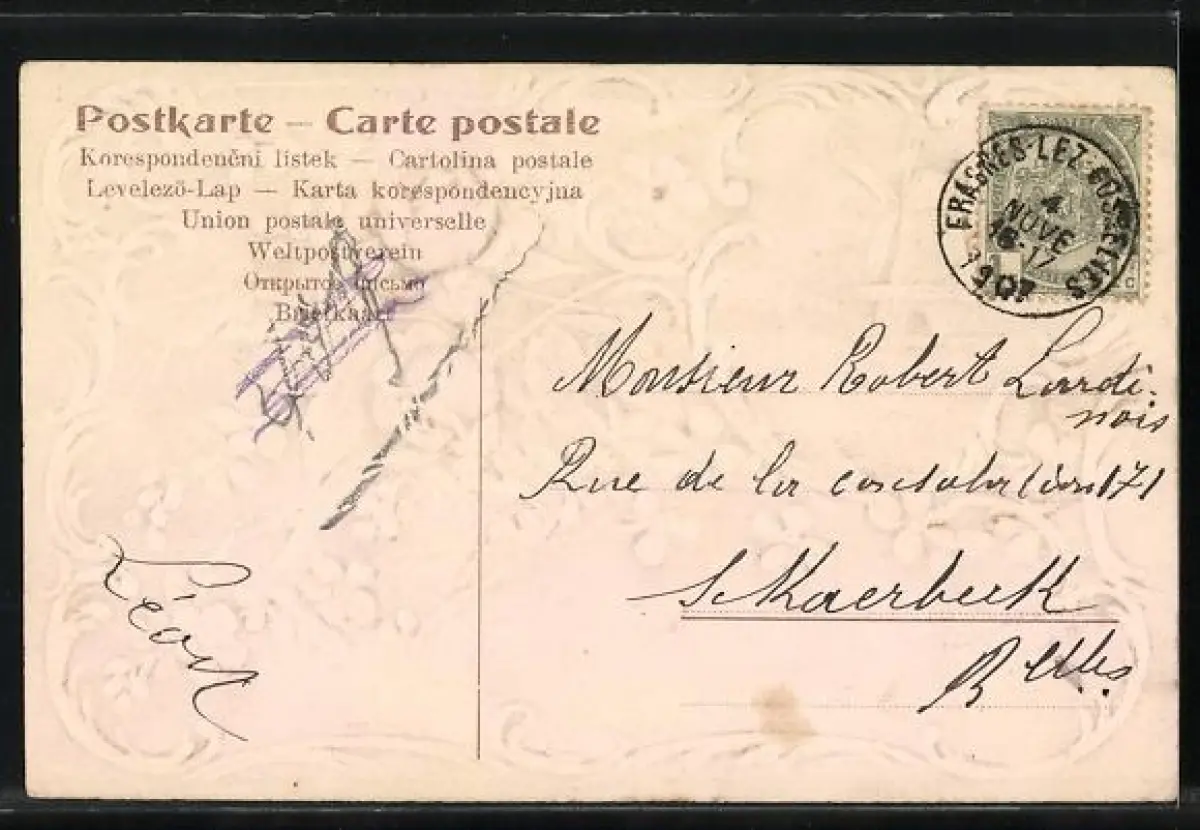 Postkarte – Carte postale
Korespondenční lístek – Cartolina postale
Levelező-Lap – Karta korespondencyjna
Union postale universelle
Weltpostverein
Открытое письмо
Briefkaart
FRASNES-LEZ-GOSSELIES
4
NOVE
16-17
07
Monsieur Robert Lardi-
nois
Rue de la 171
Skaerbeek
Bxlles
Léon